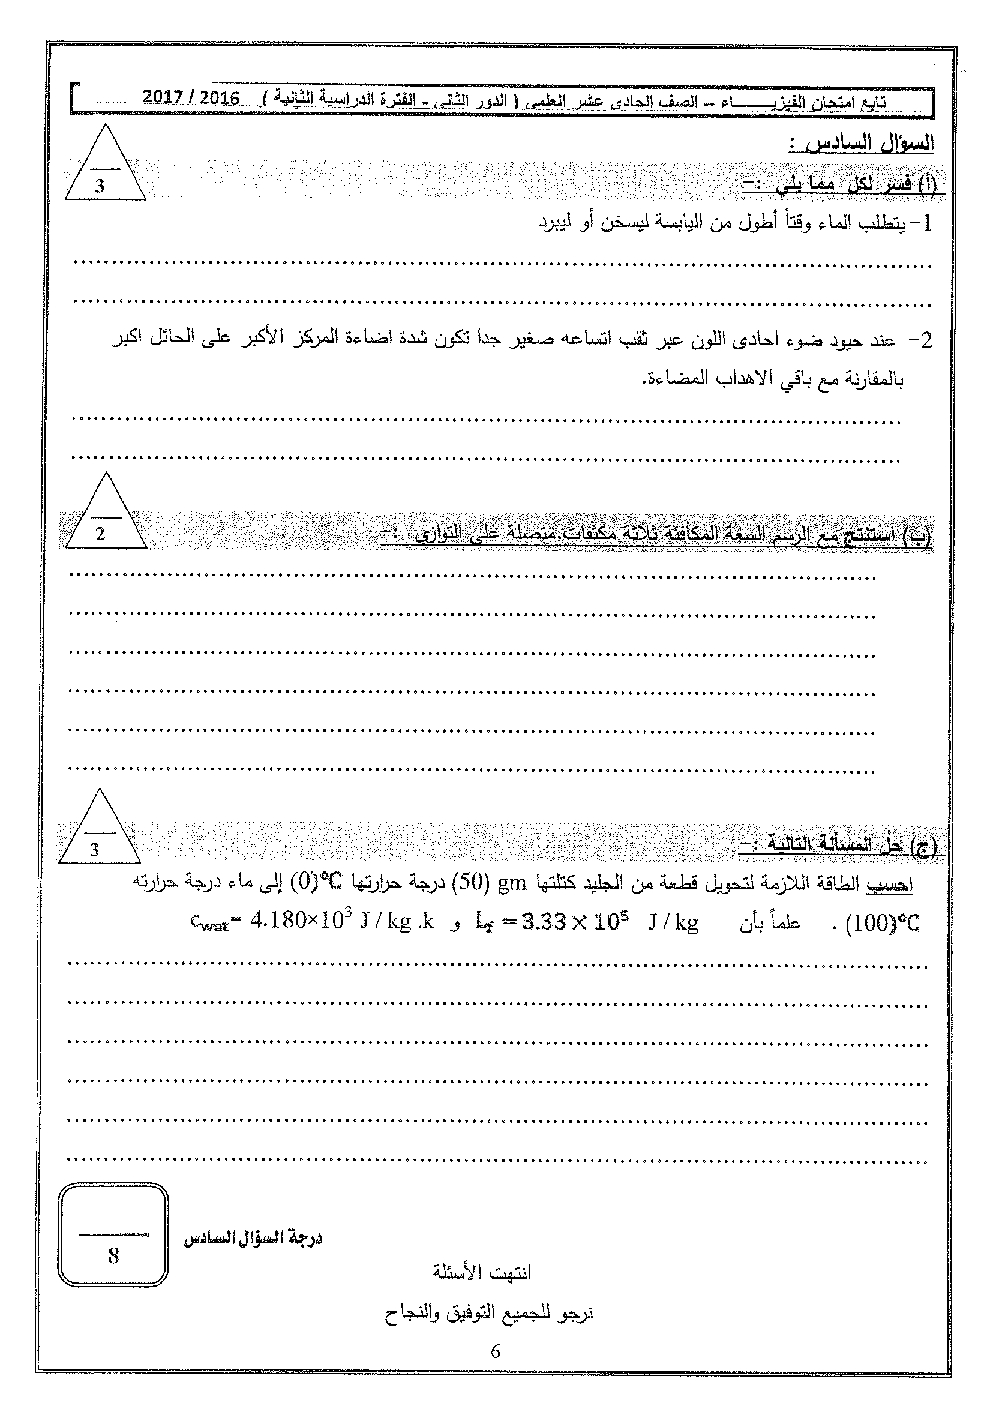 تابع امتحان الفيزيـــــــاء – الصف الحادى عشر العلمى ( الدور الثانى - الفترة الدراسية الثانية ) 2016 / 2017
السؤال السادس :
3
(أ) فسر لكل مما يلي :-
1- يتطلب الماء وقتاً أطول من اليابسة ليسخن أو ليبرد
2- عند حيود ضوء احادى اللون عبر ثقب اتساعه صغير جدا تكون شدة اضاءة المركز الأكبر على الحائل اكبر
بالمقارنة مع باقي الاهداب المضاءة.
2
(ب) استنتج مع الرسم السعة المكافئة ثلاثة مكثفات متصلة على التوازي :-
3
(ج) حل المسألة التالية :-
احسب الطاقة اللازمة لتحويل قطعة من الجليد كتلتها gm (50) درجة حرارتها (0)°C إلى ماء درجة حرارته
(100)°C . علماً بأن L_f = 3.33 × 10⁵ J / kg و c_wat= 4.180×10³ J / kg .k
درجة السؤال السادس
8
انتهت الأسئلة
نرجو للجميع التوفيق والنجاح
6